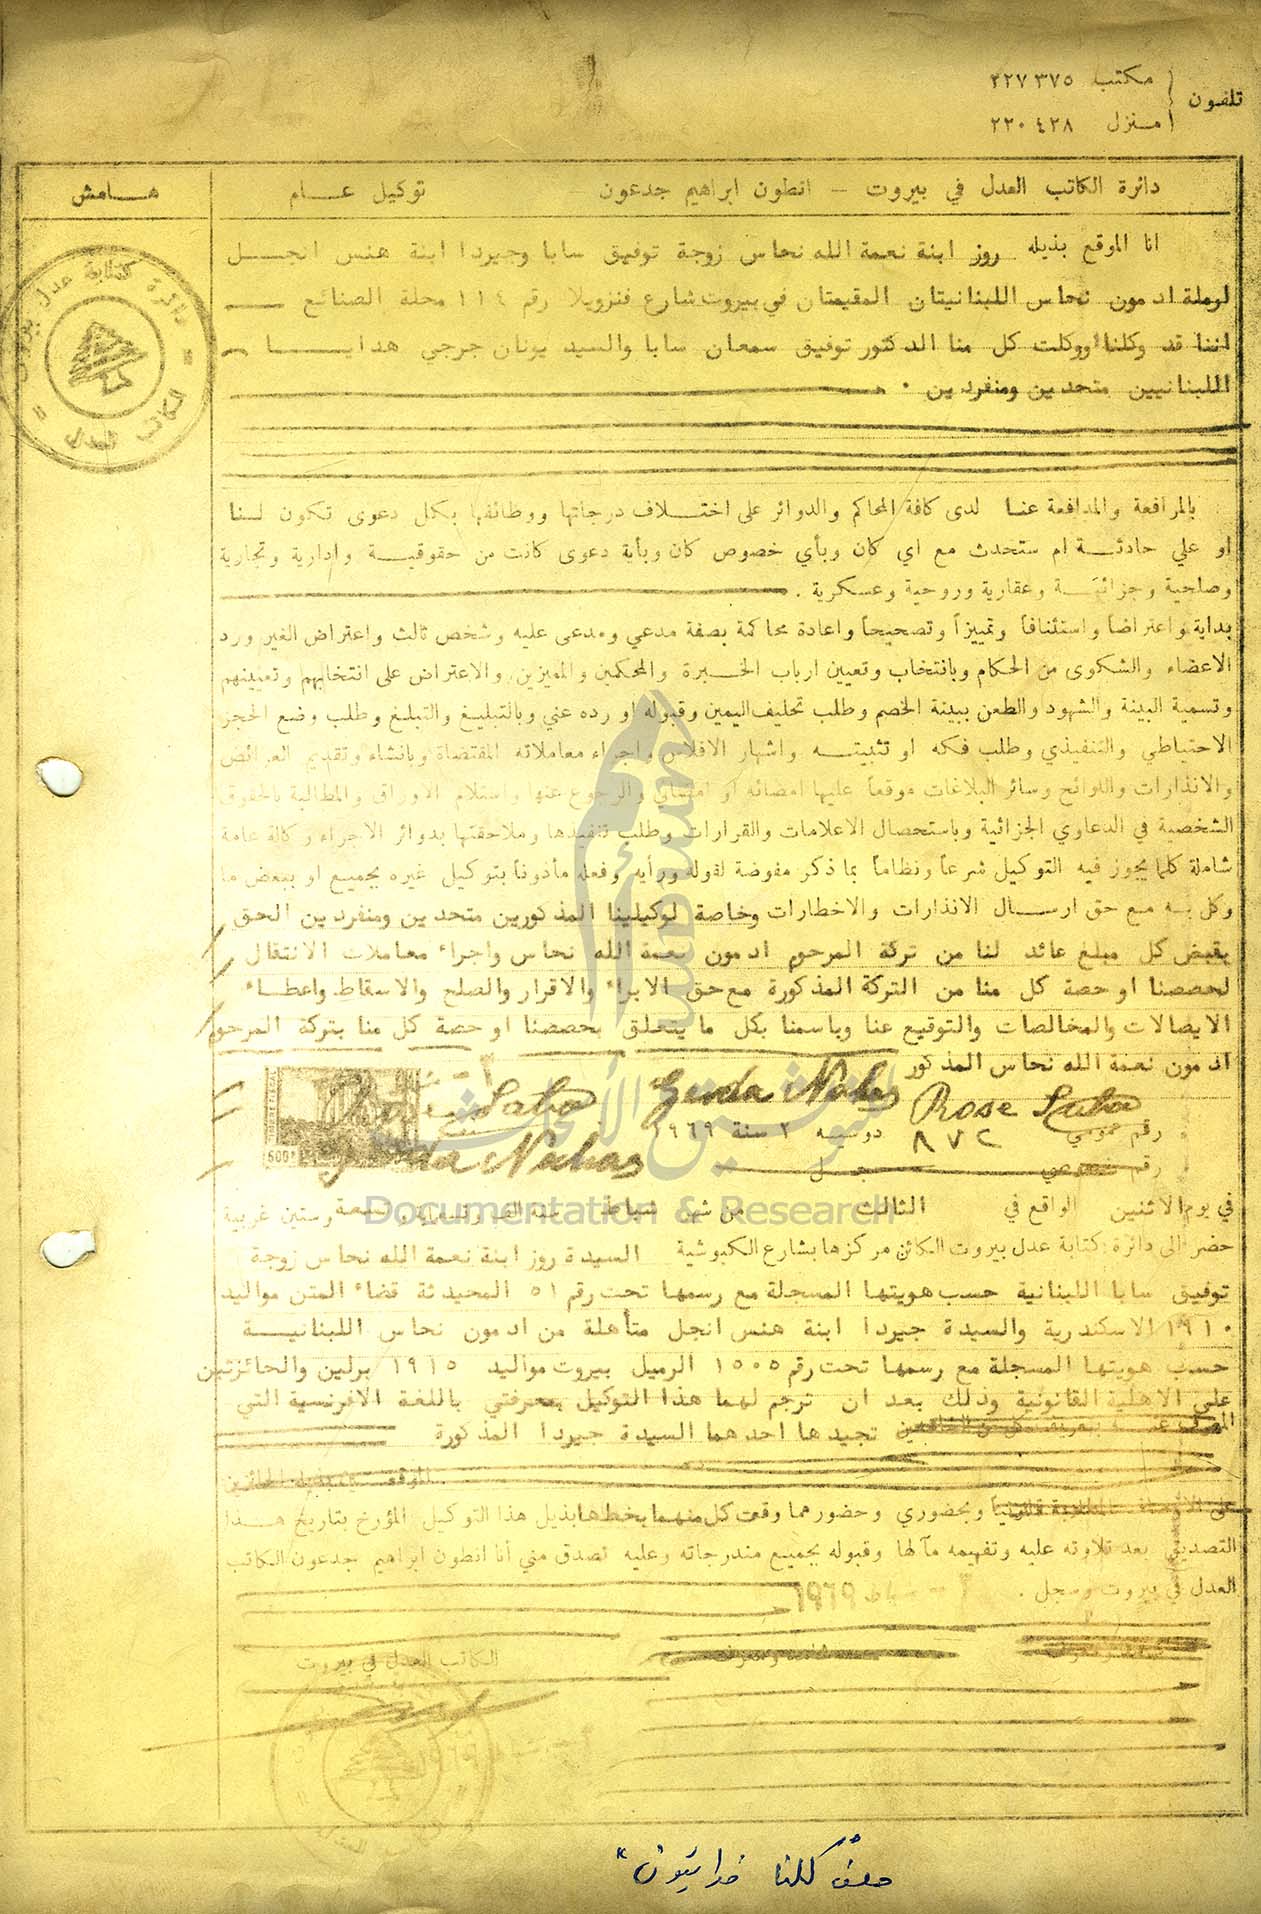 تلفون
مكتب ٢٢٧٣٧٥
منزل ٢٢٠٤٢٨
دائرة الكاتب العدل في بيروت – انطون ابراهيم جدعون توكيل عام هامش
انا الموقع بذيله روز ابنة نعمة الله نحاس زوجة توفيق سابا وجيردا ابنة هنس انجل
ارملة ادمون نحاس اللبنانيتان المقيمتان في بيروت شارع فنزويلا رقم ١١٤ محلة الصنائع
اننا قد وكلنا ووكلت كل منا الدكتور توفيق سمعان سابا والسيد يونان جرجي هدايا
اللبنانيين متحدين ومنفردين .
بالمرافعة والمدافعة عنا لدى كافة المحاكم والدوائر على اختلاف درجاتها ووظائفها بكل دعوى تكون لنا
او علي حادثة ام ستحدث مع اي كان وبأي خصوص كان وبأية دعوى كانت من حقوقية وادارية وتجارية
وصلحية وجزائية وعقارية وروحية وعسكرية .
بداية واعتراضاً واستئنافاً وتمييزاً وتصحيحاً واعادة محاكمة بصفة مدعي ومدعى عليه وشخص ثالث واعتراض الغير ورد
الاعضاء والشكوى من الحكام وبانتخاب وتعيين ارباب الخبرة والمحكمين والمميزين والاعتراض على انتخابهم وتعيينهم
وتسمية البينة والشهود والطعن ببينة الخصم وطلب تحليف اليمين وقبوله او رده عني وبالتبليغ والتبلغ وطلب وضع الحجز
الاحتياطي والتنفيذي وطلب فكه او تثبيته واشهار الافلاس واجراء معاملاته المقتضاة وبانشاء وتقديم العرائض
والانذارات واللوائح وسائر البلاغات موقعاً عليها امضائه او امضائي والرجوع عنها واستلام الاوراق والمطالبة بالحقوق
الشخصية في الدعاوي الجزائية وباستحصال الاعلامات والقرارات وطلب تنفيذها وملاحقتها بدوائر الاجراء وكالة عامة
شاملة كلما يجوز فيه التوكيل شرعاً ونظاماً بما ذكر مفوضة لقوله ورأيه وفعله مأذوناً بتوكيل غيره بجميع او ببعض ما
وكل به مع حق ارسال الانذارات والاخطارات وخاصة لوكيلينا المذكورين متحدين ومنفردين الحق
بقبض كل مبلغ عائد لنا من تركة المرحوم ادمون نعمة الله نحاس واجراء معاملات الانتقال
لحصصنا او حصة كل منا من التركة المذكورة مع حق الابراء والاقرار والصلح والاسقاط واعطاء
الايصالات والمخالصات والتوقيع عنا وباسمنا بكل ما يتعلق بحصصنا او حصة كل منا بتركة المرحوم
ادمون نعمة الله نحاس المذكور
Rose Saba Gerda Nahas Rose Saba
رقم عمومي ٨٧٢ دوسيه ٢ سنة ١٩٦٩
Gerda Nahas
500
رقم خصوصي سجل
في يوم الاثنين الواقع في الثالث من شهر شباط سنة الف وتسعماية وتسعة وستين غربية
حضر الى دائرة كتابة عدل بيروت الكائن مركزها بشارع الكبوشية السيدة روز ابنة نعمة الله نحاس زوجة
توفيق سابا اللبنانية حسب هويتها المسجلة مع رسمها تحت رقم ٥١ المحيدثة قضاء المتن مواليد
١٩١٠ الاسكندرية والسيدة جيردا ابنة هنس انجل متأهلة من ادمون نحاس اللبنانية
حسب هويتها المسجلة مع رسمها تحت رقم ١٥٠٥ الرميل بيروت مواليد ١٩١٥ برلين والحائزتين
على الاهلية القانونية وذلك بعد ان ترجم لهما هذا التوكيل بمعرفتي باللغة الافرنسية التي
تجيدها احدهما السيدة جيردا المذكورة
الموقعين بذيله الحائزين
وبحضوري وحضورهما وقعت كل منهما بخطها بذيل هذا التوكيل المؤرخ بتاريخ هذا
التصديق بعد تلاوته عليه وتفهيمه مآلها وقبوله بجميع مندرجاته وعليه تصدق مني أنا انطون ابراهيم جدعون الكاتب
العدل في بيروت وسجل . ٣ - شباط ١٩٦٩
الكاتب العدل في بيروت
دائرة كتابة عدل بيروت
الكاتب العدل
أمم للتوثيق والأبحاث
Documentation & Research